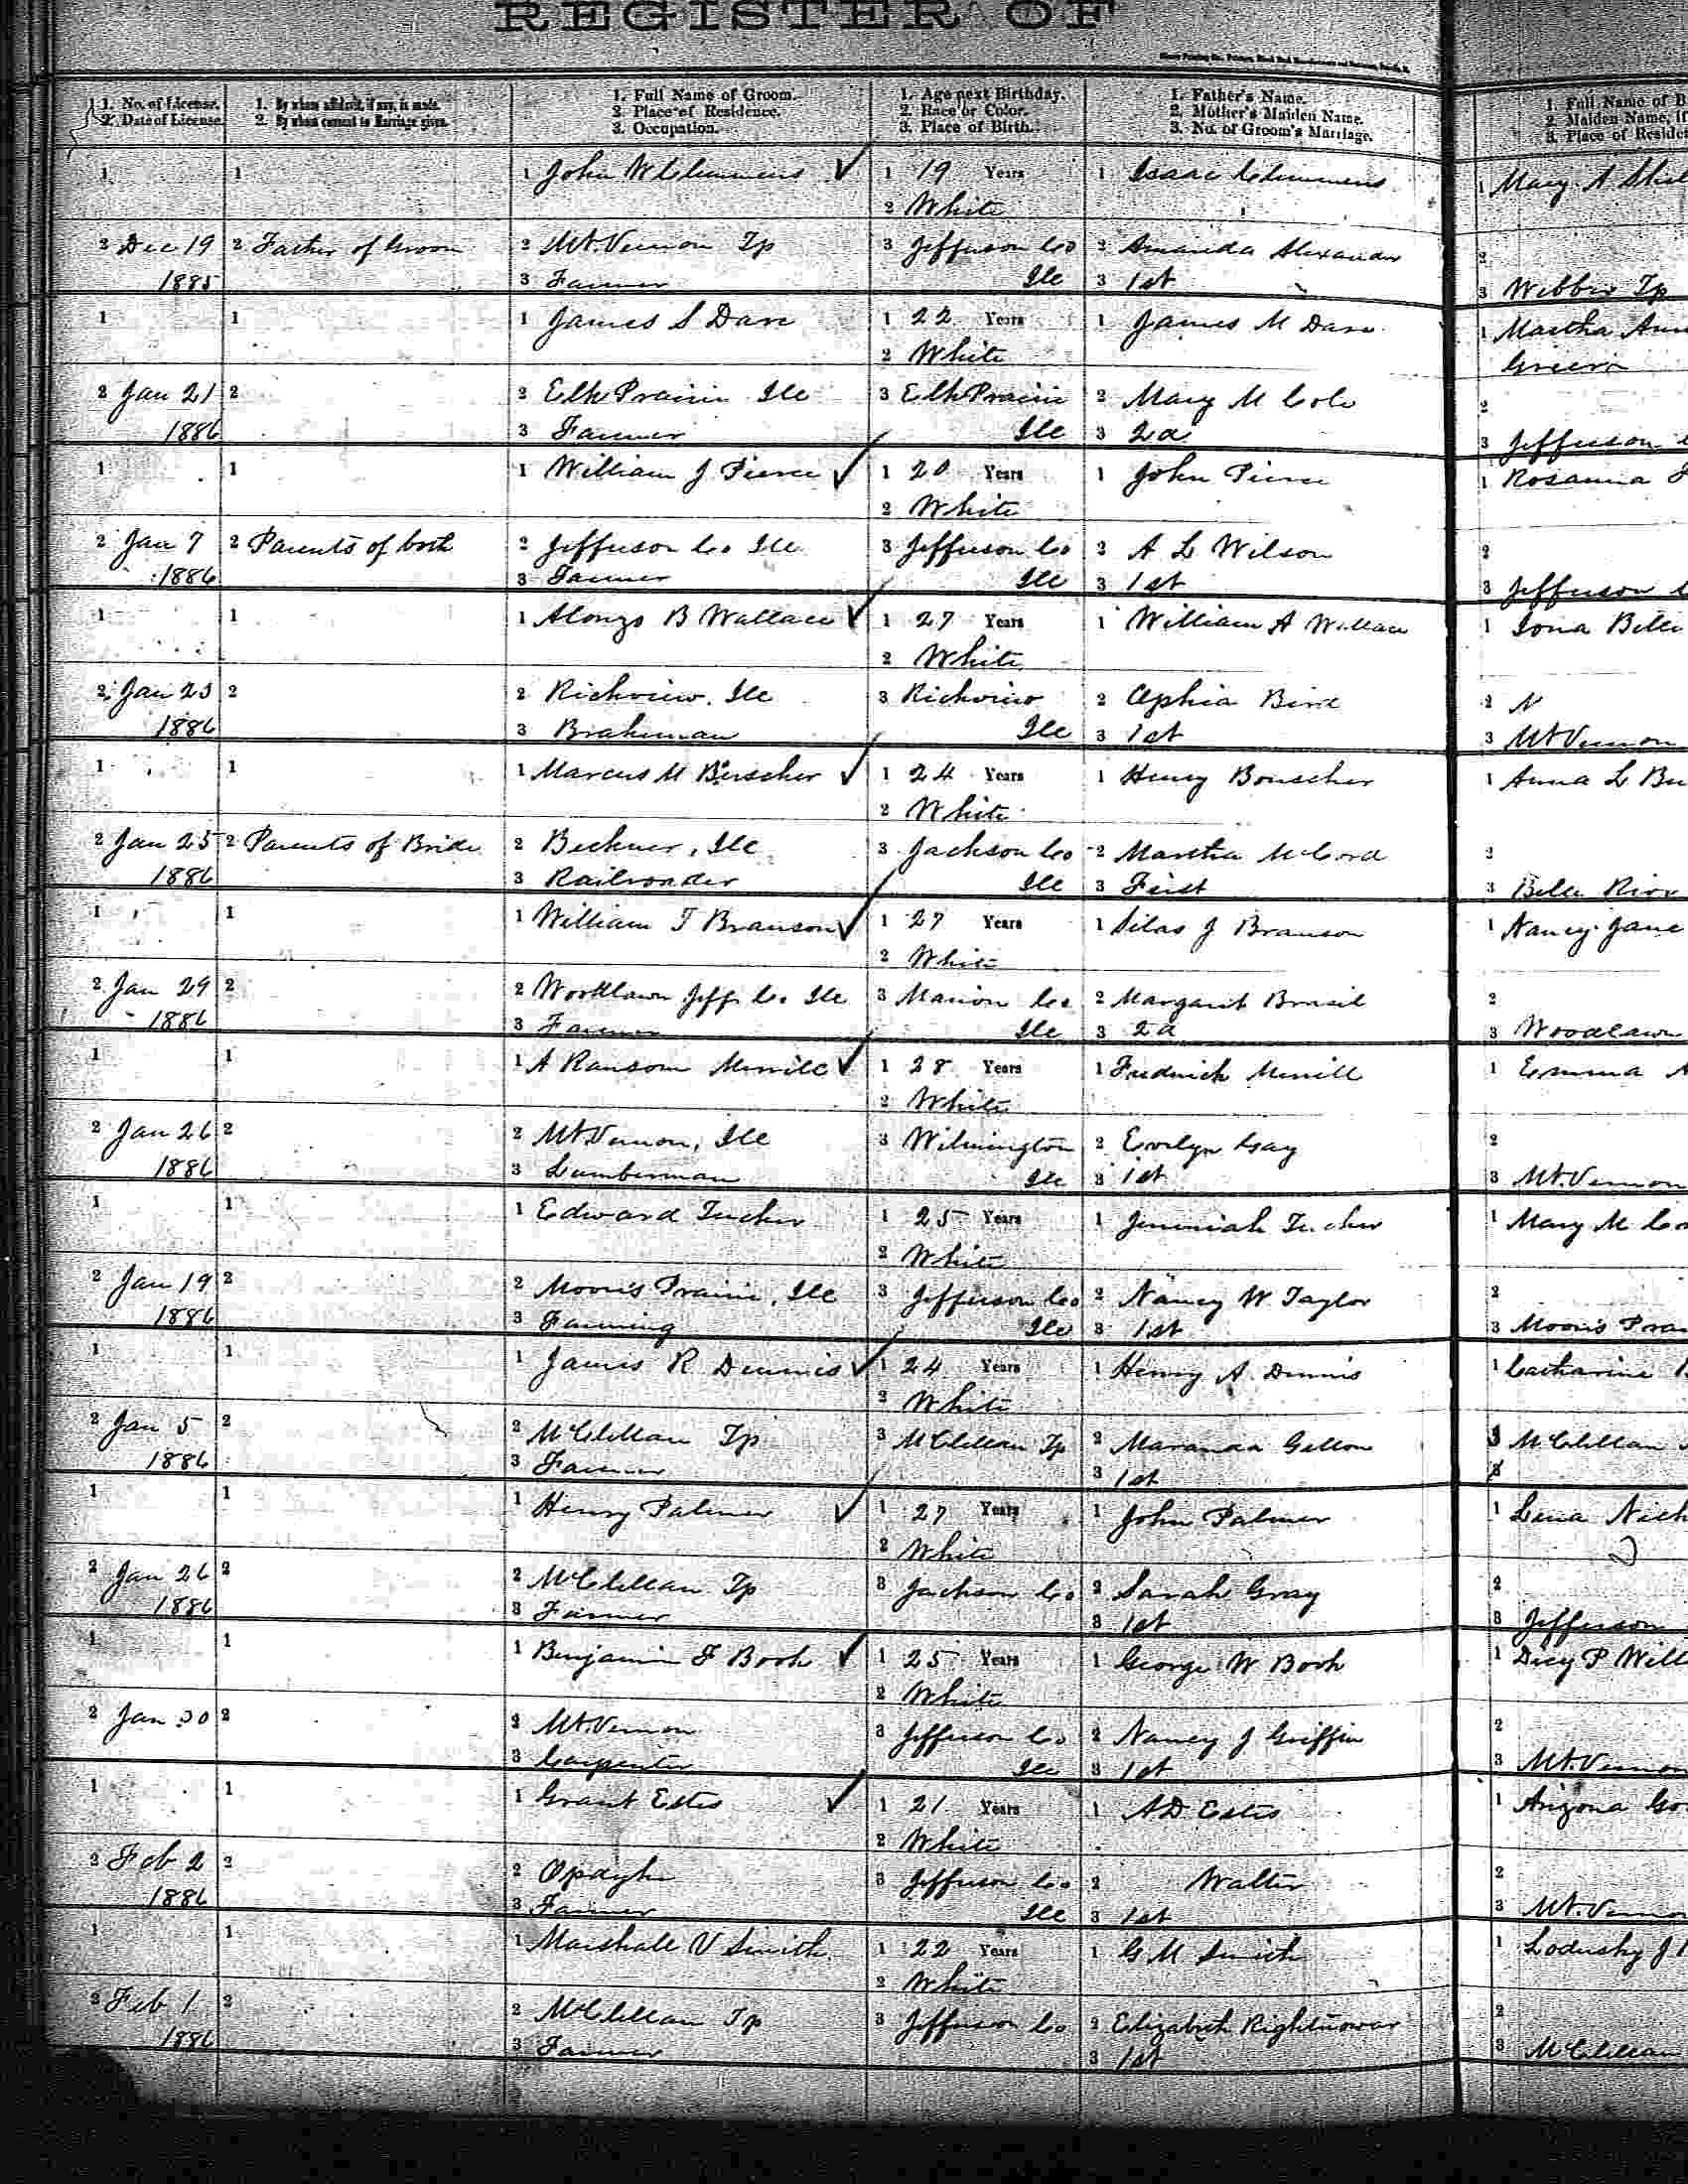 REGISTER OF
1. No. of License.
2. Date of License.
1. By whom affidavit, if any, is made.
2. By whom consent to Marriage given.
1. Full Name of Groom.
2. Place of Residence.
3. Occupation.
1. Age next Birthday.
2. Race or Color.
3. Place of Birth.
1. Father's Name.
2. Mother's Maiden Name.
3. No. of Groom's Marriage.
1. Full Name of B
2. Maiden Name, if
3. Place of Reside
1 1 1 John W Clemmens ✓ 1 19 Years 1 Isaac Clemmens 1 Mary A
2 White
2 Dec 19 2 Father of Groom 2 Mt. Vernon Tp 3 Jefferson Co 2 Amanda Alexander 2
1885 3 Farmer Ill 3 1st 3 Webber Tp
1 1 1 James S Dare 1 22 Years 1 James M Dare 1 Martha Ann
2 White
2 Jan 21 2 2 Elk Prairie Ill 3 Elk Prairie 2 Mary M Cole 2
1886 3 Farmer Ill 3 2d 3 Jefferson
1 1 1 William J Pierce ✓ 1 20 Years 1 John Pierce 1 Rosanna
2 White
2 Jan 7 2 Parents of both 2 Jefferson Co Ill 3 Jefferson Co 2 A L Wilson 2
1886 3 Farmer Ill 3 1st 3 Jefferson
1 1 1 Alonzo B Wallace ✓ 1 27 Years 1 William A Wallace 1 Iona Belle
2 White
2 Jan 23 2 2 Richview, Ill 3 Richview 2 2 N
1886 3 Brakeman Ill 3 1st 3 Mt Vernon
1 1 1 Marcus M ✓ 1 24 Years 1 Henry Bouscher 1 Anna L
2 White
2 Jan 25 2 Parents of Bride 2 Ill 3 Jackson Co 2 Martha McCord 2
1886 3 Railroader Ill 3 First 3 Belle Rive
1 1 1 William T Branson ✓ 1 27 Years 1 Silas J Branson 1 Nancy Jane
2 White
2 Jan 29 2 2 Woodlawn Jeff Co. Ill 3 Marion Co 2 Margaret Brasil 2
1886 3 Farmer Ill 3 2d 3 Woodlawn
1 1 1 A Ransom Merrill ✓ 1 28 Years 1 Fredrick Merrill 1 Emma
2 White
2 Jan 26 2 2 Mt. Vernon, Ill 3 Wilmington 2 Evelyn Gay 2
1886 3 Lumberman Ill 3 1st 3 Mt. Vernon
1 1 1 Edward Tucker 1 25 Years 1 Jeremiah Tucker 1 Mary M
2 White
2 Jan 19 2 2 Moores Prairie, Ill 3 Jefferson Co 2 Nancy W Taylor 2
1886 3 Farming Ill 3 1st 3 Moores Prai
1 1 1 James R Dennis ✓ 1 24 Years 1 Henry A Dennis 1 Catharine
2 White
2 Jan 5 2 2 McClellan Tp 3 McClellan Tp 2 3 McClellan
1886 3 Farmer 3 1st
1 1 1 Henry Palmer ✓ 1 27 Years 1 John Palmer 1 Lena Nich
2 White
2 Jan 26 2 2 McClellan Tp 3 Jackson Co 2 Sarah Gray 2
1886 3 Farmer 3 1st 3 Jefferson
1 1 1 Benjamin F Book ✓ 1 25 Years 1 George W Book 1 Dicy P Will
2 White
2 Jan 30 2 2 Mt. Vernon 3 Jefferson Co 2 Nancy J Griffin 2
3 Carpenter Ill 3 1st 3 Mt. Vernon
1 1 1 Grant Estes ✓ 1 21 Years 1 A D Estes 1 Arizona
2 White
2 Feb 2 2 2 Opdyke 3 Jefferson Co 2 Walter 2
1886 3 Farmer Ill 3 1st 3 Mt. Vernon
1 1 1 Marshall V Smith 1 22 Years 1 G M Smith 1 Lodusky J
2 White
2 Feb 1 2 2 McClellan Tp 3 Jefferson Co 2 Elizabeth Rightnowar 2
1886 3 Farmer 3 1st 3 McClellan